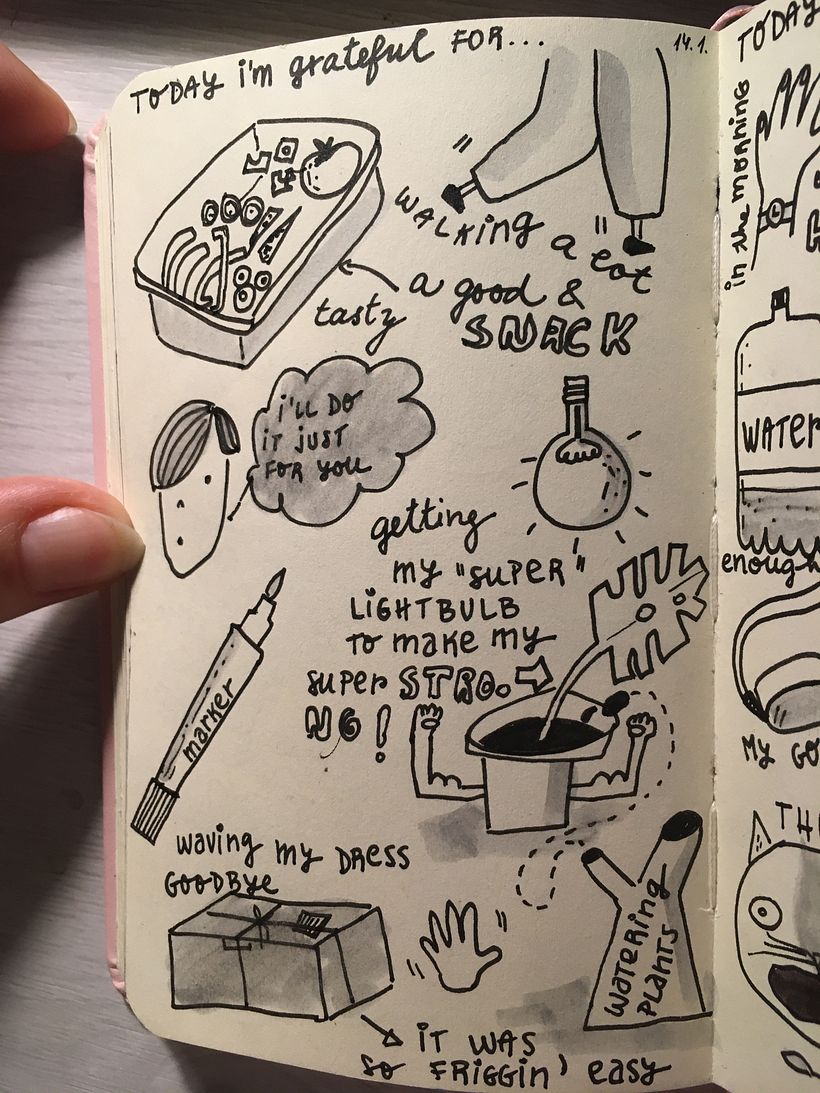 TODAY i'm grateful FOR...
14.1.
WALKING a lot
a good &
tasty
SNACK
i'LL DO
iT JUST
FOR YOU
getting
my "SUPER"
LiGHTBULB
TO make my
super STRO
NG!
marker
waving my DRESS
GOODBYE
WATERING
PLANTS
iT WAS
SO FRiGGiN' easy
TODAY
in the MORNING
WATER
enough
MY GO
TH